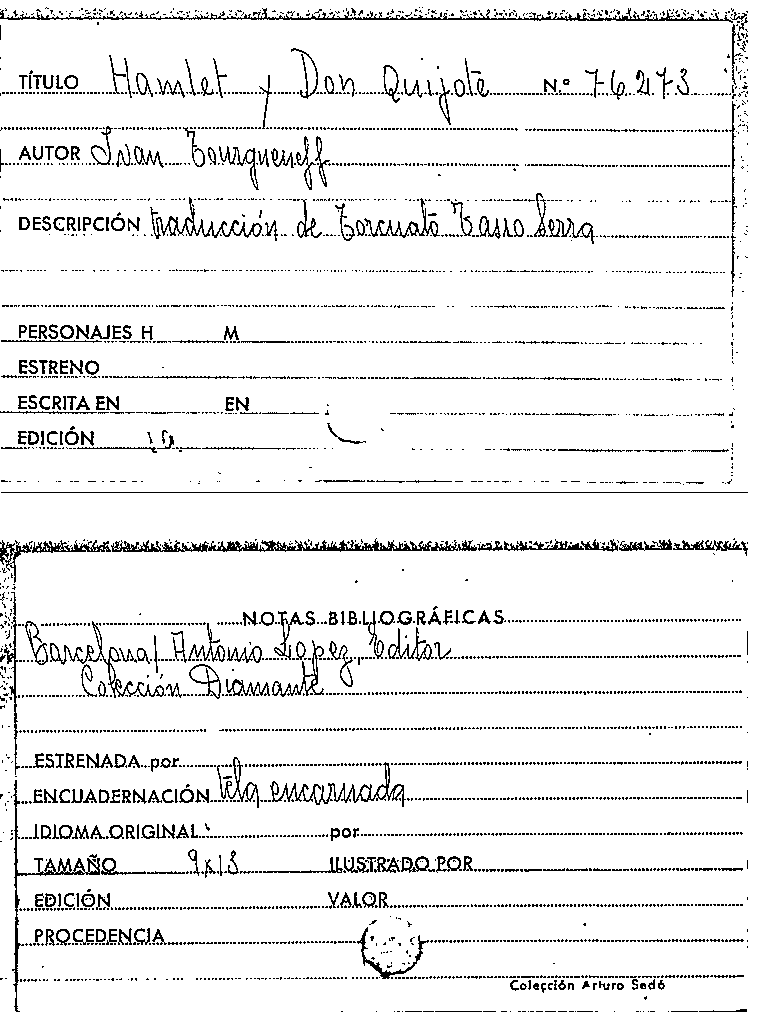 TÍTULO Hamlet y Don Quijote N.º 76273
AUTOR Ivan Tourgueneff
DESCRIPCIÓN traducción de Torcuato Tasso Serra
PERSONAJES H M
ESTRENO
ESCRITA EN EN
EDICIÓN 1a.
NOTAS BIBLIOGRÁFICAS
Barcelona/ Antonio Lopez, Editor
Colección Diamante
ESTRENADA por
ENCUADERNACIÓN tela encarnada
IDIOMA ORIGINAL por
TAMAÑO 9x13 ILUSTRADO POR
EDICIÓN VALOR
PROCEDENCIA
Colección Arturo Sedó